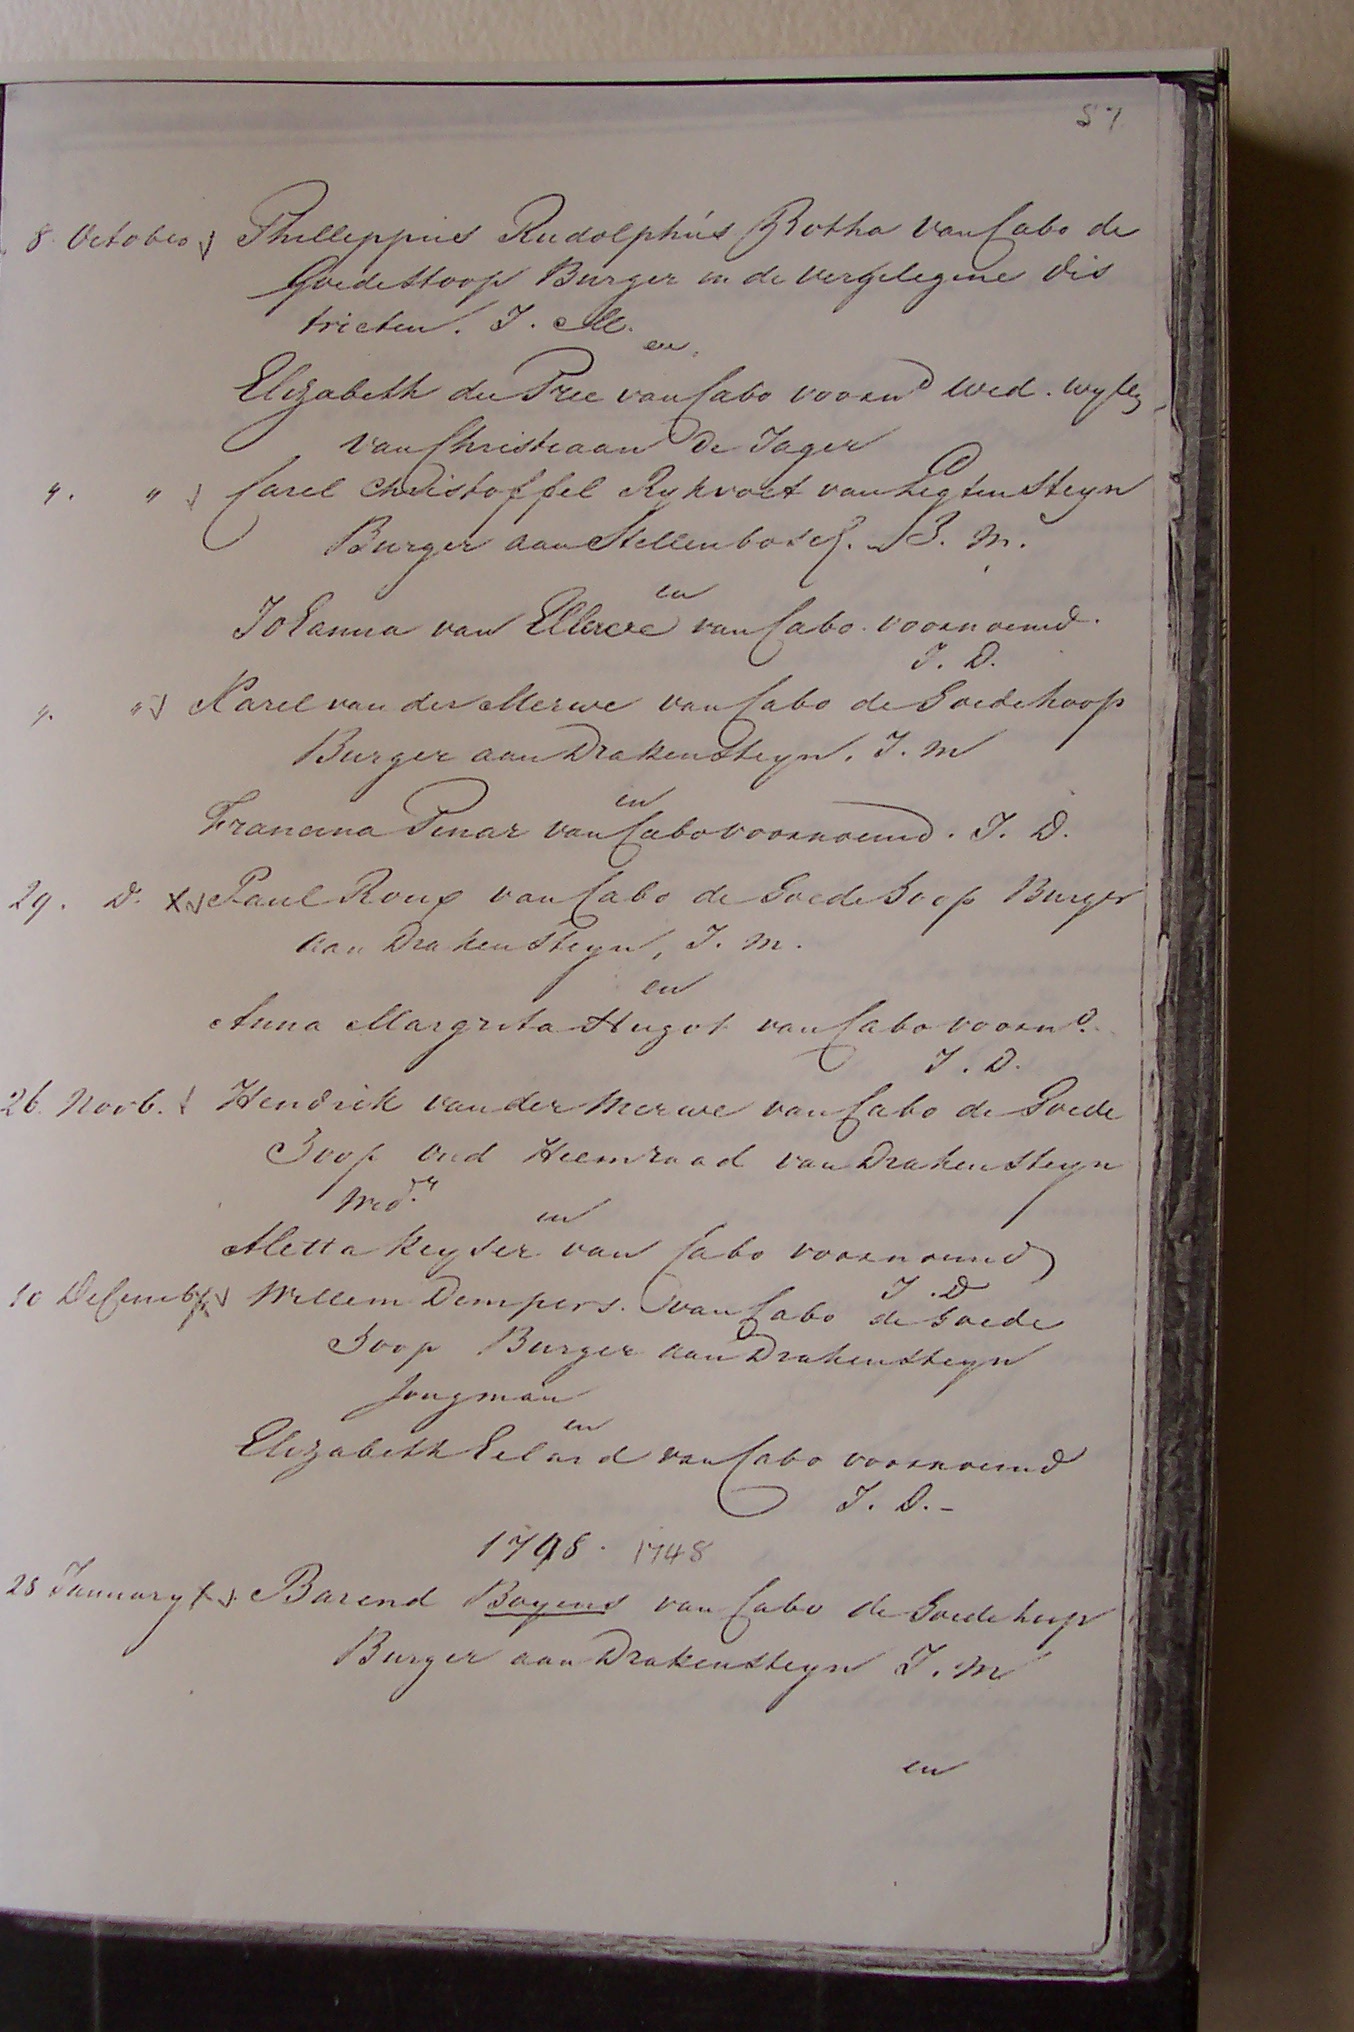 57
8 October Philleppus Rudolphus Botha van Cabo de
Goede Hoop Burger in de vergelegene dis
tricten. J. M.
en
Elizabeth du Pree van Cabo voornd wed. wyle
van Christiaan de Jager
" " Carel Christoffel Rykvoet van Ligtensteyn
Burger aan Stellenbosch. J. M.
en
Johanna van Ellewe van Cabo voornoemd.
J. D.
" " Karel van der Merwe van Cabo de Goede hoop
Burger aan Drakensteyn. J. M
en
Francina Pinar van Cabo voornoemd. J. D.
29. D. x Paul Roux van Cabo de Goede Hoop Burger
aan Drakensteyn, J. M.
en
Anna Margrita Hugot van Cabo voornd.
J. D.
26 Novb. Hendrik van der Merwe van Cabo de Goede
Hoop oud Heemraad van Drakensteyn
Wedr
en
Aletta Keyser van Cabo voornoemd
J. D
10 Decemb Willem Dempers. van Cabo de Goede
Hoop Burger aan Drakensteyn
Jongman
en
Elizabeth Eelard van Cabo voornoemd
J. D. -
1748. 1748
28 January Barend Boyens van Cabo de Goede hoop
Burger aan Drakensteyn J. M
en